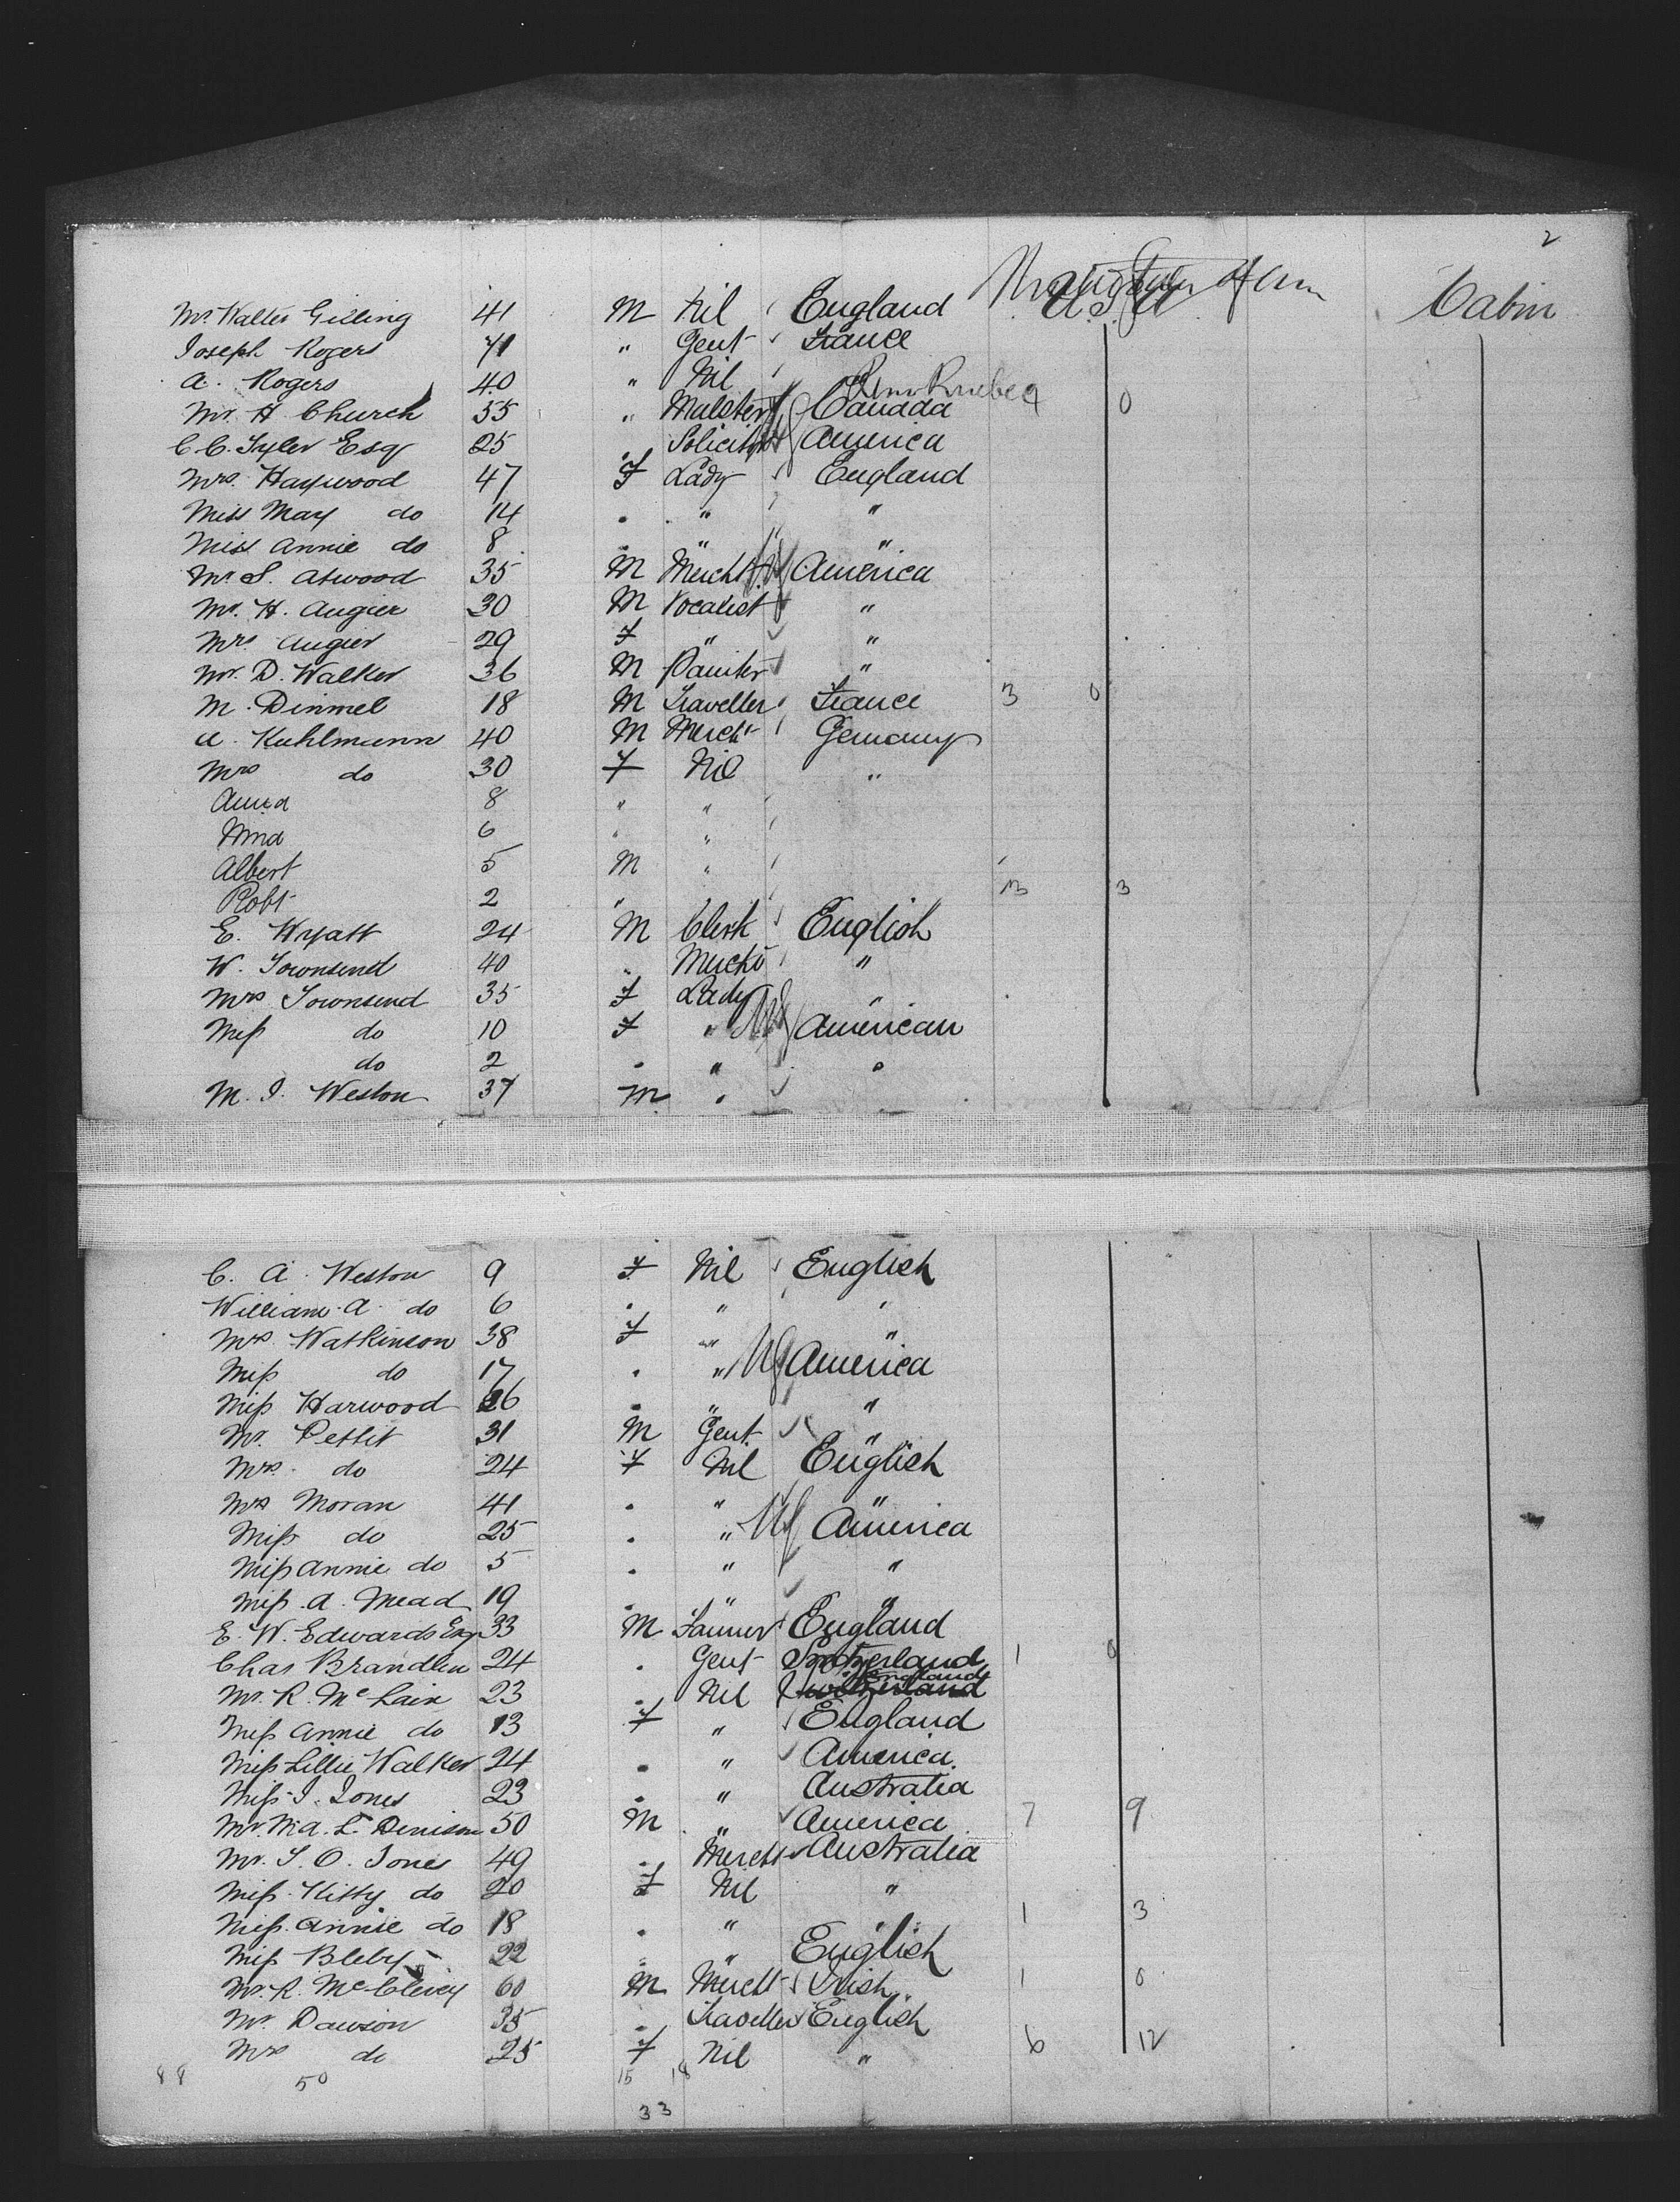 2
Mr. Walter Gilling 41 M Nil England U.S.A. Cabin
Joseph Rogers 71 " Gent France
A. Rogers 40 " Nil
Mr. H. Church 55 " Malster Canada 0
C. C. Tyler Esq 25 " Solicitor America
Mrs. Haywood 47 F Lady England
Miss May do 14 " " "
Miss Annie do 8 " " "
Mr. S. Atwood 35 M Mercht America
Mr. H. Augier 30 M Vocalist "
Mrs Augier 29 F " "
Mr. D. Walker 36 M Painter "
M. Dinmel 18 M Traveller France 3 0
A. Kuhlmann 40 M Mercht Germany
Mrs do 30 F Nil "
Anna 8 " "
Nina 6 " "
Albert 5 M "
Robt 2 " 13 3
E. Wyatt 24 M Clerk English
W. Townsend 40 " Mercht "
Mrs Townsend 35 F Lady "
Miss do 10 F " American
do 2 " " "
M. J. Weston 37 M "
C. A. Weston 9 F Nil English
William A. do 6 " " "
Mrs. Watkinson 38 F " "
Miss do 17 " " America
Miss Harwood 26 " " "
Mr. Pettit 31 M Gent "
Mrs. do 24 F Nil English
Mrs Moran 41 " " "
Miss do 25 " " America
Miss Annie do 5 " " "
Miss A. Mead 19 " " "
E. W. Edwards Esq 33 M Farmer England
Chas Brandlin 24 " Gent Switzerland 1 0
Mr. R. McLain 23 " Nil England
Miss Annie do 13 F " England
Miss Lillie Walker 24 " " America
Miss J. Jones 23 " " Australia
Mr. Wm. A. L. Denison 50 M " America 7 9
Mr. J. O. Jones 49 " Mercht Australia
Miss Kitty do 20 F Nil "
Miss Annie do 18 " " " 1 3
Miss Bleby 22 " " English
Mr. R. McClevey 60 M Mercht Irish 1 0
Mr. Dawson 35 " Traveller English
Mrs do 25 F Nil " 6 12
88 50 15 18
33